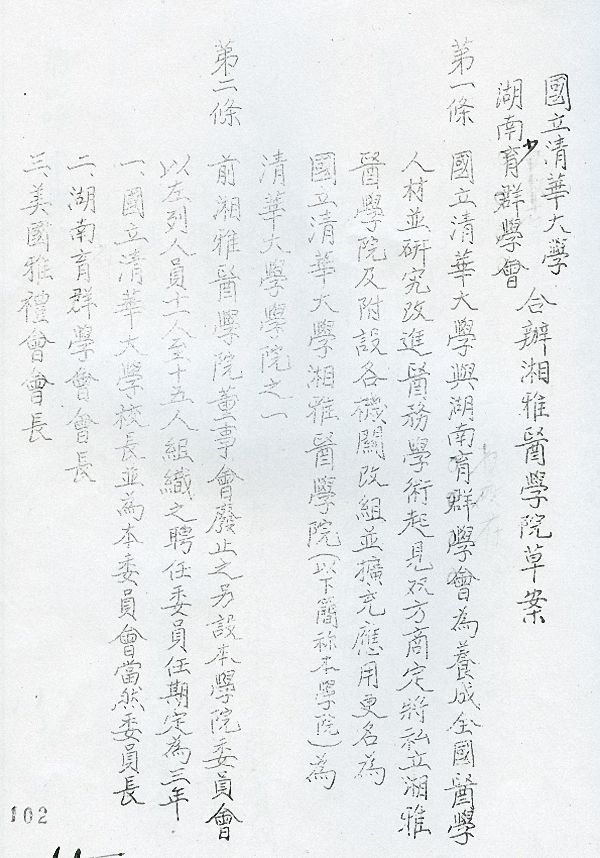 國立清華大學
湖南育群學會
合辦湘雅醫學院草案
第一條 國立清華大學與湖南育群學會為養成全國醫學
人材並研究改進醫務學術起見双方商定將私立湘雅
醫學院及附設各機關改組並擴充應用更名為
國立清華大學湘雅醫學院(以下簡称本學院)為
清華大學學院之一
第二條 前湘雅醫學院董事會廢止之另設本學院委員會
以左列人員十一人至十五人組織之聘任委員任期定為三年
一、國立清華大學校長並為本委員會當然委員長
二、湖南育群學會會長
三、美國雅禮會會長
102